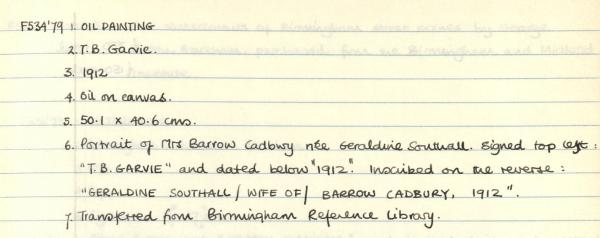 F534'79 1. OIL PAINTING
2. T.B. Garvie.
3. 1912
4. Oil on canvas.
5. 50.1 x 40.6 cms.
6. Portrait of Mrs Barrow Cadbury née Geraldine Southall. Signed top left:
"T.B. GARVIE" and dated below "1912". Inscribed on the reverse:
"GERALDINE SOUTHALL / WIFE OF / BARROW CADBURY, 1912".
7. Transferred from Birmingham Reference Library.